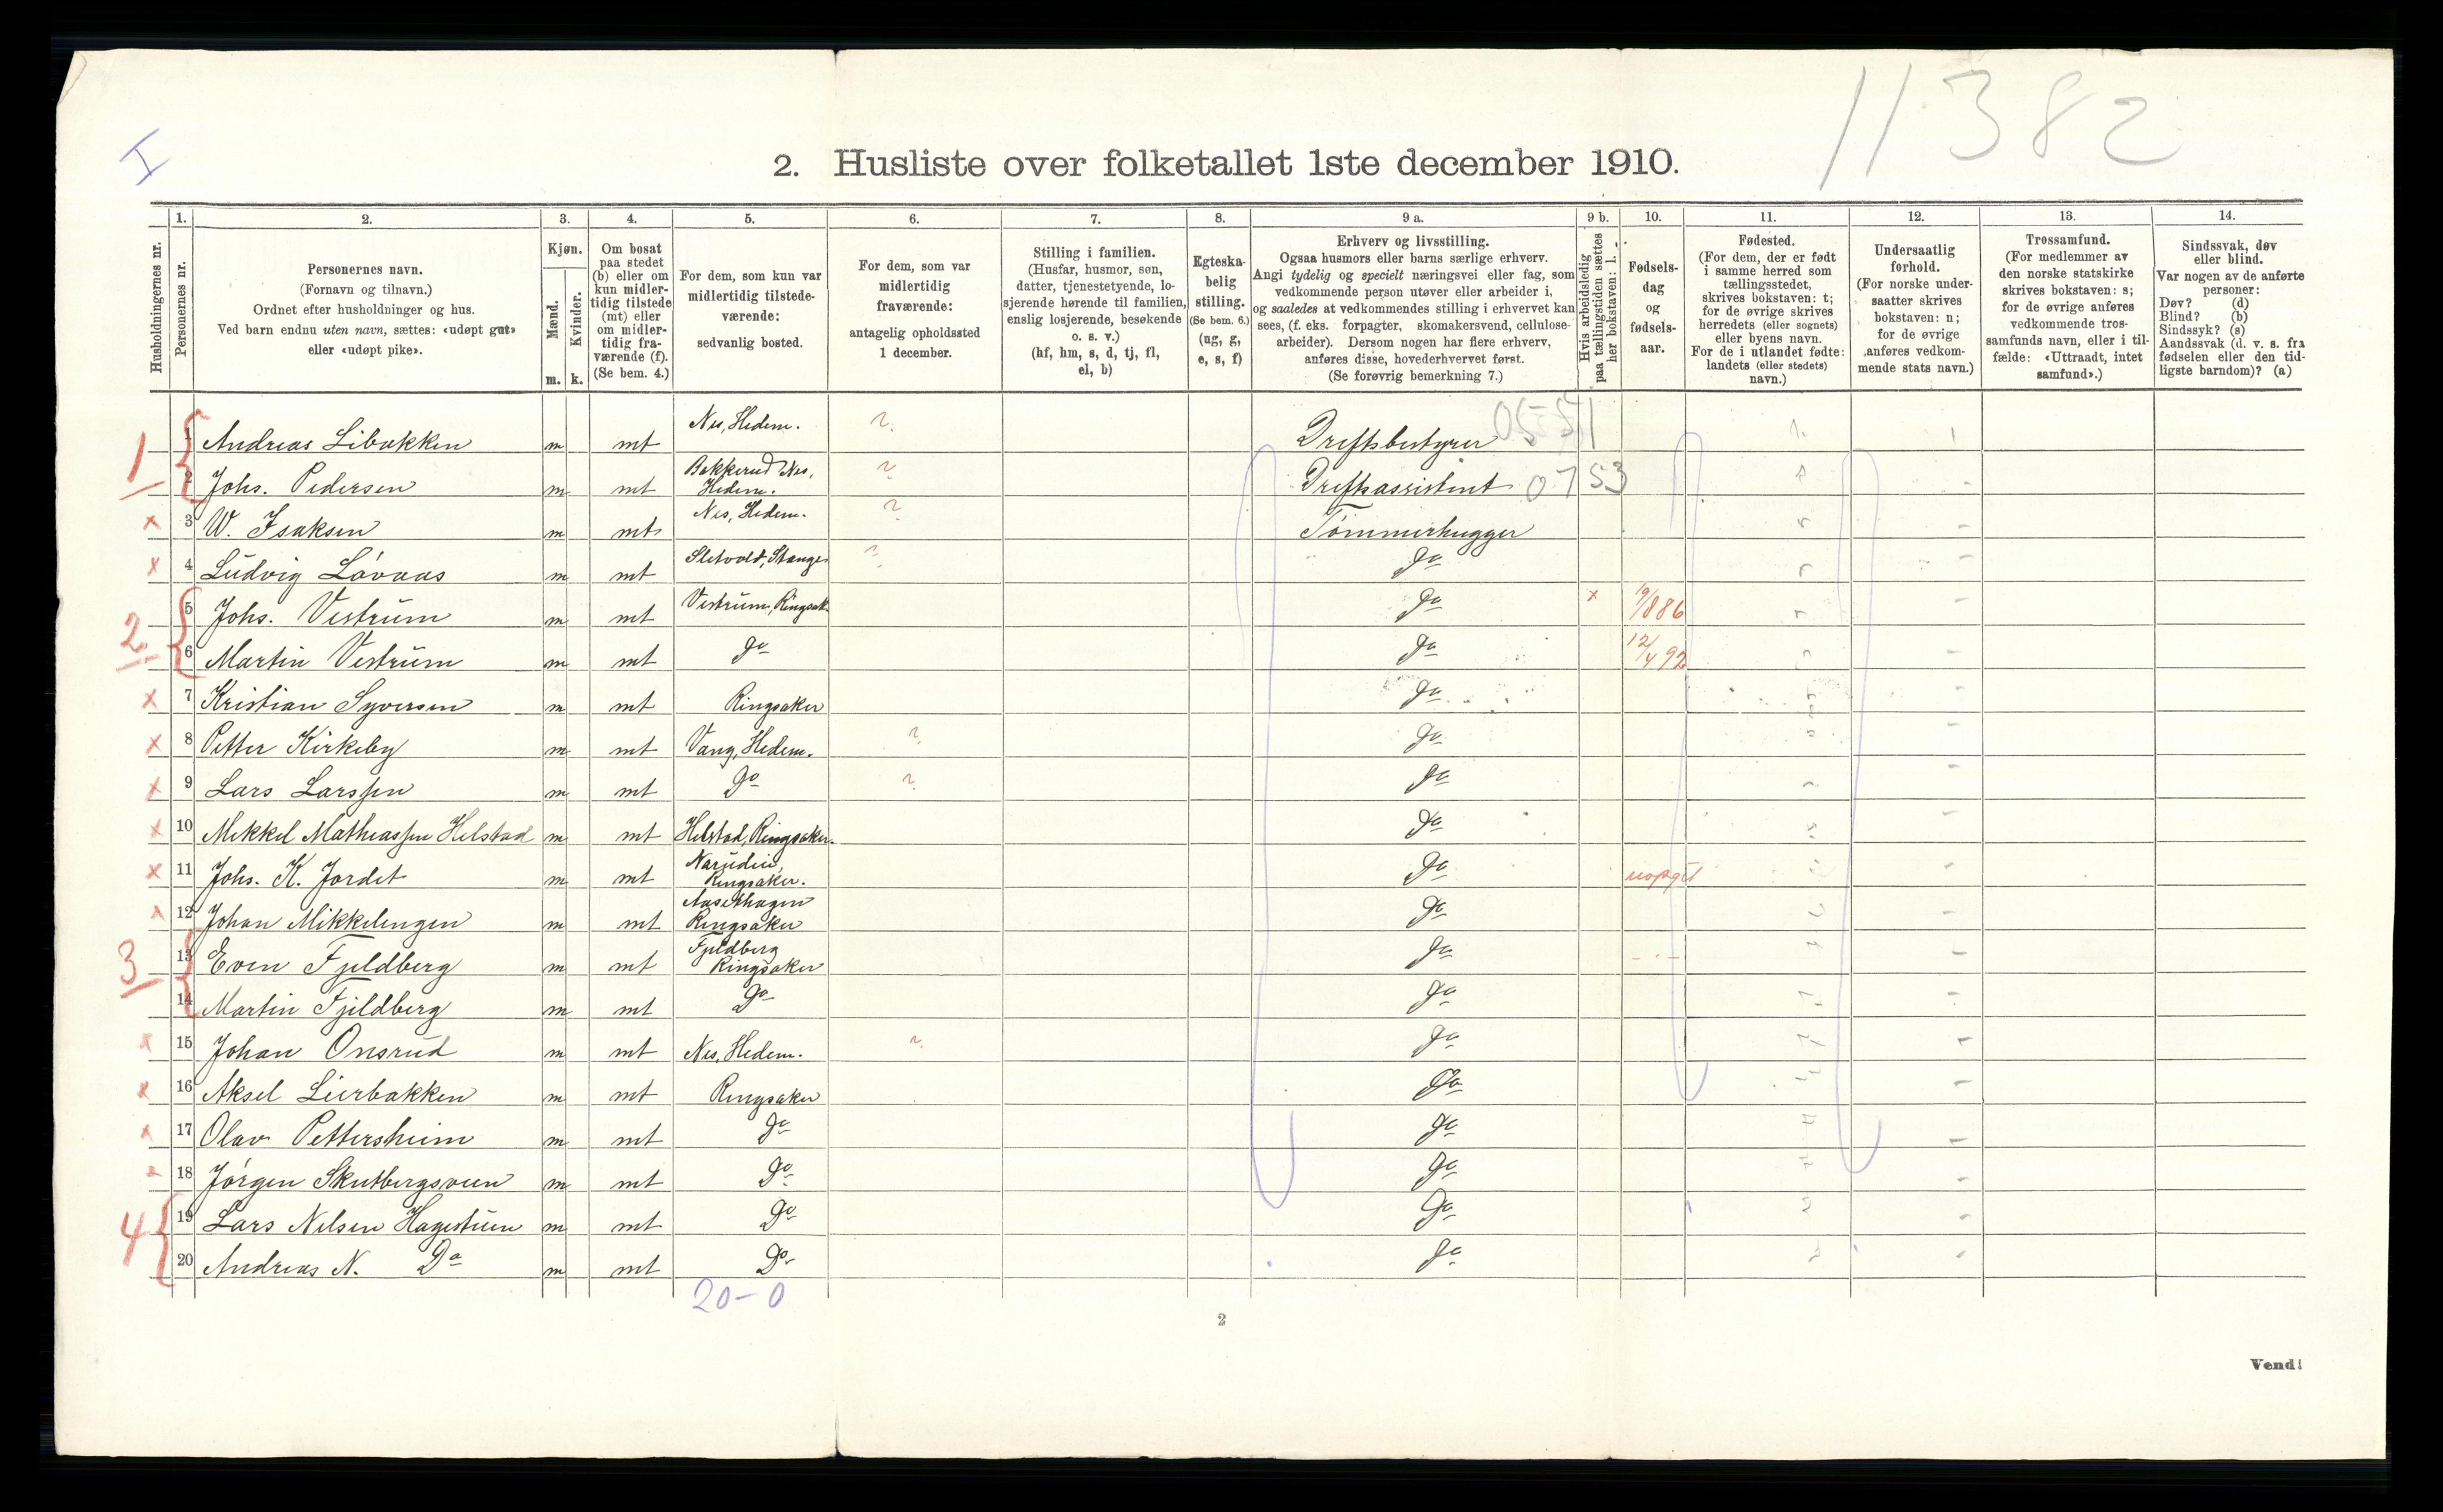 11382
I
2. Husliste over folketallet 1ste december 1910.
Husholdningernes nr.
1.
Personernes nr.
2.
Personernes navn.
(Fornavn og tilnavn.)
Ordnet efter husholdninger og hus.
Ved barn endnu uten navn, sættes: «udøpt gut»
eller «udøpt pike».
3.
Kjøn.
Mænd.
Kvinder.
m. k.
4.
Om bosat
paa stedet
(b) eller om
kun midler-
tidig tilstede
(mt) eller
om midler-
tidig fra-
værende (f).
(Se bem. 4.)
5.
For dem, som kun var
midlertidig tilstede-
værende:
sedvanlig bosted.
6.
For dem, som var
midlertidig
fraværende:
antagelig opholdssted
1 december.
7.
Stilling i familien.
(Husfar, husmor, søn,
datter, tjenestetyende, lo-
sjerende hørende til familien,
enslig losjerende, besøkende
o. s. v.)
(hf, hm, s, d, tj, fl,
el, b)
8.
Egteska-
belig
stilling.
(Se bem. 6.)
(ug, g,
e, s, f)
9 a.
Erhverv og livsstilling.
Ogsaa husmors eller barns særlige erhverv.
Angi tydelig og specielt næringsvei eller fag, som
vedkommende person utøver eller arbeider i,
og saaledes at vedkommendes stilling i erhvervet kan
sees, (f. eks. forpagter, skomakersvend, cellulose-
arbeider). Dersom nogen har flere erhverv,
anføres disse, hovederhvervet først.
(Se forøvrig bemerkning 7.)
9 b.
Hvis arbeidsledig
paa tællingstiden sættes
her bokstaven: l.
10.
Fødsels-
dag
og
fødsels-
aar.
11.
Fødested.
(For dem, der er født
i samme herred som
tællingsstedet,
skrives bokstaven: t;
for de øvrige skrives
herredets (eller sognets)
eller byens navn.
For de i utlandet fødte:
landets (eller stedets)
navn.)
12.
Undersaatlig
forhold.
(For norske under-
saatter skrives
bokstaven: n;
for de øvrige
anføres vedkom-
mende stats navn.)
13.
Trossamfund.
(For medlemmer av
den norske statskirke
skrives bokstaven: s;
for de øvrige anføres
vedkommende tros-
samfunds navn, eller i til-
fælde: «Uttraadt, intet
samfund».)
14.
Sindssvak, døv
eller blind.
Var nogen av de anførte
personer:
Døv? (d)
Blind? (b)
Sindssyk? (s)
Aandssvak (d. v. s. fra
fødselen eller den tid-
ligste barndom)? (a)
1 1 Andreas Libakken m mt Nes, Hedem. ? Driftsbestyrer
2 Johs. Pedersen m mt Bakkerud Nes, Hedem. ? Driftsassistent 0753
x 3 W. Isaksen m mt Nes, Hedem. ? Tömmerhugger
x 4 Ludvig Lövaas m mt Sletvold, Stange ? Do
2 5 Johs. Vestrum m mt Vestrum, Ringsak. Do x 19/8 86
6 Martin Vestrum m mt Do Do 12/4 92
x 7 Kristian Syversen m mt Ringsaker Do
x 8 Petter Kirkeby m mt Vang, Hedem. ? Do
x 9 Lars Larssen m mt Do ? Do
x 10 Mikkel Mathiassen Helstad m mt Helstad, Ringsaker. Do
x 11 Johs. K. Jordet m mt Ringsaker. Do uopgit
x 12 Johan Mikkelengen m mt Ringsaker Do
3 13 Even Fjeldberg m mt Fjeldberg Ringsaker Do - " -
14 Martin Fjeldberg m mt Do Do
x 15 Johan Onsrud m mt Nes, Hedem. ? Do
x 16 Aksel Lierbakken m mt Ringsaker Do
x 17 Olav Pettersheim m mt Do Do
x 18 Jörgen Skutbergsveen m mt Do Do
4 19 Lars Nilsen Hagestuen m mt Do Do
20 Andreas N. Do m mt Do Do
20-0
2
Vend!